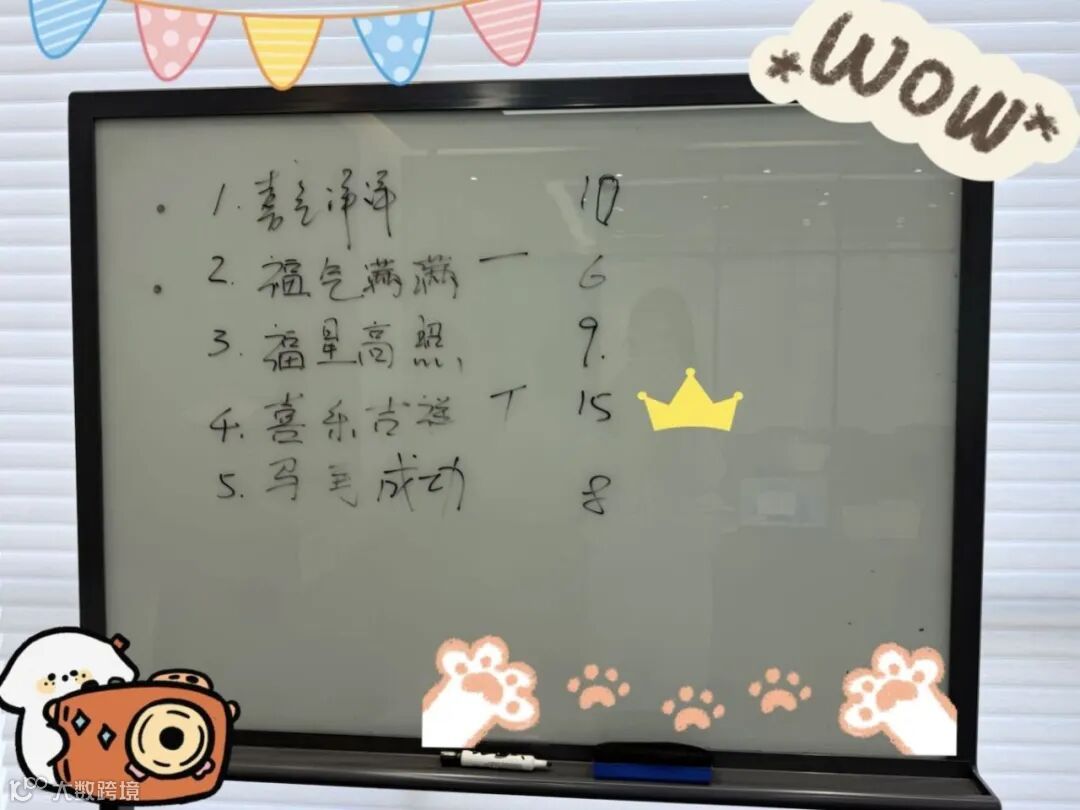 *WOW*
1. 喜气洋洋 10
2. 福气满满 一 6
3. 福星高照 9.
4. 喜乐吉祥 T 15
5. 马到成功 8
大数跨境